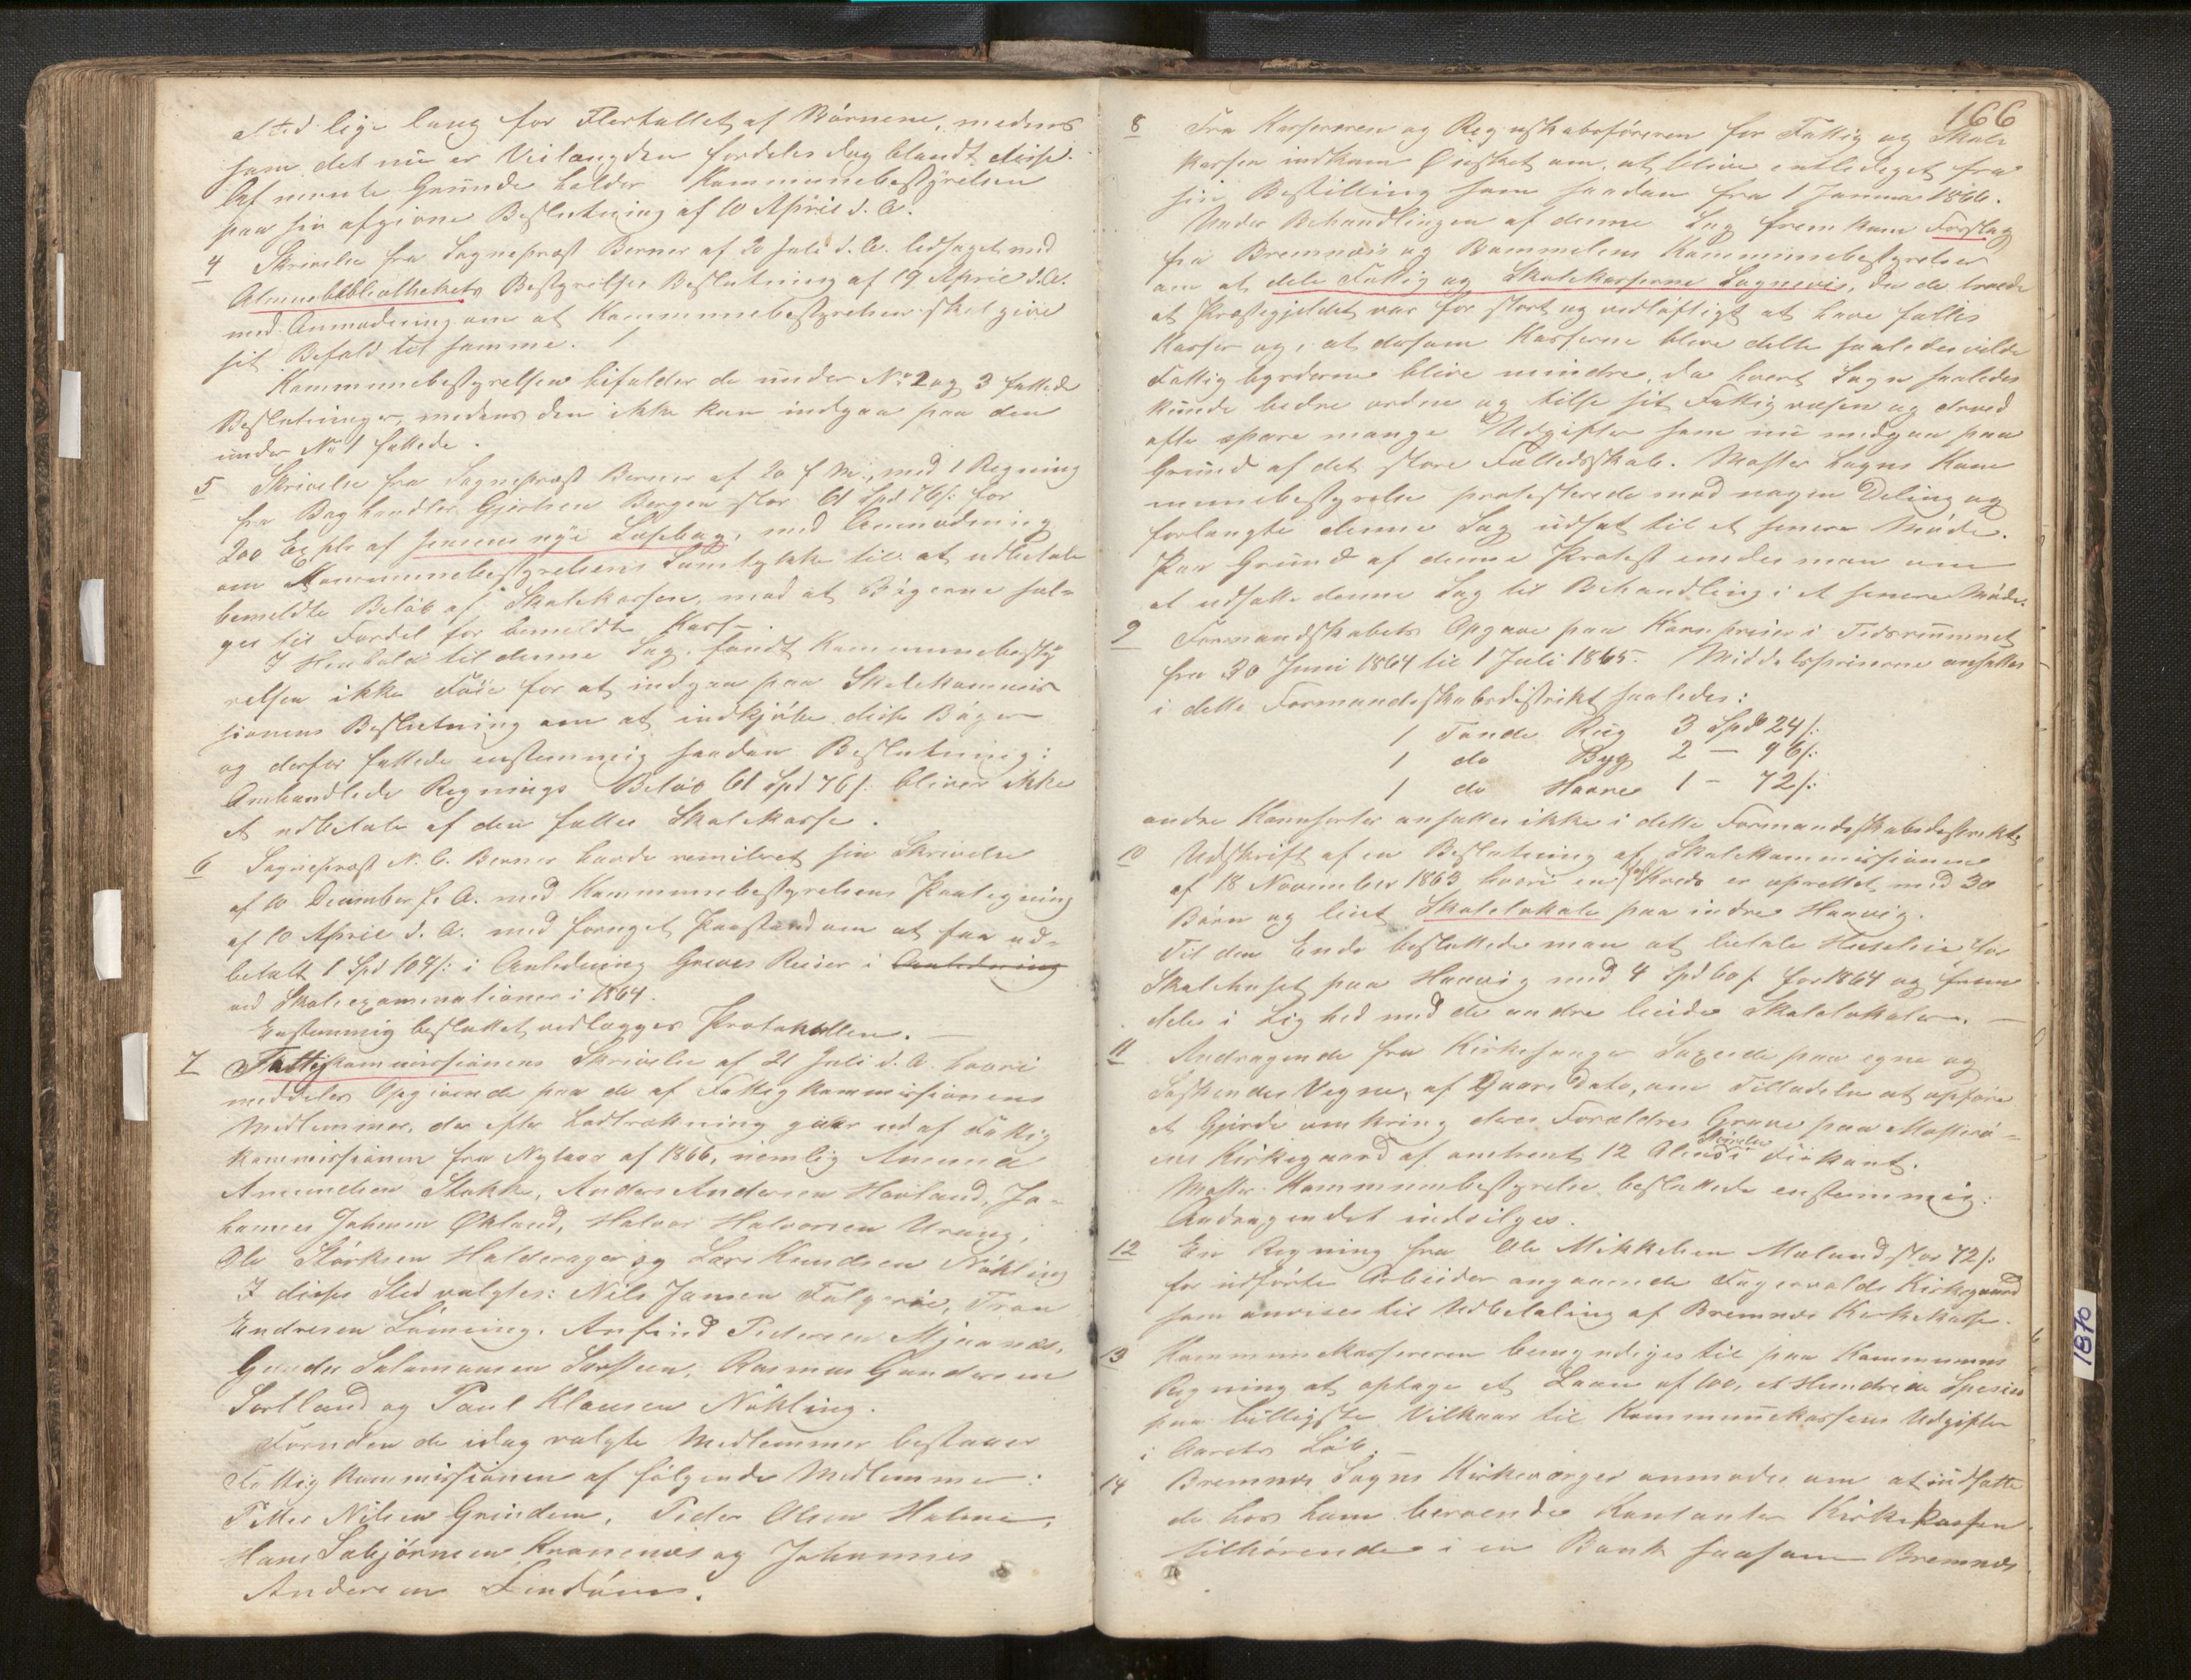 altid lige lang for Flertallet af Börnene, medens
som det nu er Veilængden fordeles dog blandt disse.
Af nævnte Grunde holder Kommunebestyrelsen
paa sin afgivne Beslutning af 10 April d. A.
4 Skrivelse fra Sognepræst Berner af 20 Juli d. A. ledsaget med
Almuebibliothekets Bestyrelses Beslutning af 19 April d. A.
med Anmodning om at Kommunebestyrelsen skal give
sit Bifald til samme.
Kommunebestyrelsen bifalder de under No 2 og 3 fattede
Beslutninger, medens den ikke kan indgaa paa den
under No 1 fattede.
5 Skrivelse fra Sognepræst Berner af 20 f. M., med 1 Regning
fra Boghandler Gjertsen Bergen stor 61 Spd 76 s: for
200 Explr af Jensens nye Læsebog, med Anmodning
om Kommunebestyrelsens Samtykke til at udbetale
bemeldte Belöb af Skolekassen, mod at Bögerne sæl-
ges til Fordel for bemeldte Kasse.
I Henhold til denne Sag, fandt Kommunebesty
relsen ikke Föie for at indgaa paa Skolekommis
sionens Beslutning om at indkjöbe disse Böger
og derfor fattede enstemmig saadan Beslutning:
Omhandlede Regnings Belöb 61 Spd 76 s: bliver ikke
at udbetale af den fælles Skolekasse.
6 Sognepræst N. C. Berner havde remitteret sin Skrivelse
af 10 December f. A. med Kommunebestyrelsens Paategning
af 10 April d. A. med fornyet Paastand om at faa ud-
betalt 1 Spd 104 s: i Anledning Greves Reiser i Anledning
ved Skoleexaminationer i 1864.
Enstemmig besluttet vedlægges Protokollen.
7 Fattigkommissionens Skrivelse af 21 Juli d. A. hvori
meddeles Opgivende paa de af Fattigkommissionens
Medlemmer, der efter Lodtrækning gaar ud af Fattig
kommissionen fra Nytaar af 1866, nemlig Amund
Amundsen Stokke, Anders Andersen Hovland, Jo-
hannes Johnsen Økland, Halvor Halvorsen Urang,
Ole Störksen Halderager og Lars Knudsen Nökling
I disses Sted valgtes: Nils Jansen Folgeröe,
Endresen Anfind Pedersen Mjaanæs,
Gunder Salomonsen Rasmus Gundersen
Sortland og Paul Klausen Nökling.
Foruden de idag valgte Medlemmer bestaaer
Fattigkommissionen af fölgende Medlemmer:
Petter Nilsen Grindem, Peder Olsen Holme,
Hans Sebjörnsen Kraanæs og Johannes
Andersen
166
8 Fra Kassereren og Regnskabsföreren for Fattig og Skole
kassen indkom Önsket om at blive entlediget fra
sin Bestilling som saadan fra 1 Januar 1866.
Under Behandlingen af denne Sag fremkom Forslag
fra Bremnæs og Bømmeløens Kommunebestyrelser
om at dele Fattig og Skolekasserne Sognevis, da de troede
at Præstegjeldet var for stort og vidlöftigt at have fælles
Kasser og, at dersom Kasserne blive delte saaledes vilde
Fattigbyrderne blive mindre, da hvert Sogn saaledes
kunde bedre ordne og tilse sit Fattigvæsen og derved
ofte spare mange Udgifter som nu medgaa paa
Grund af det store Fælledsskab. Moster Sogns Kom
munebestyrelse protesterede mod nogen Deling og
forlangte denne Sag udsat til et senere Möde.
Paa Grund af denne Protest enedes man om
at udsætte denne Sag til Behandling i et senere Möde.
9 Formandskabets Opgave paa Kornpriser i Tidsrummet
fra 30 Juni 1864 til 1 Juli 1865. Middelspriserne ansættes
i dette Formandsskabsdistrikt saaledes:
1 Tønde Rug 3 Spd 24 s:
1 do Byg 2 - 96 s:
1 do Havre 1 - 72 s:
andre Kornsorter ansættes ikke i dette Formandsskabsdistrikt.
10 Udskrift af en Beslutning af Skolekommissionen
af 18 November 1863 hvori en Kreds er oprettet med 30
Börn og leiet Skolelokale paa indre Haavig.
Til den Ende besluttede man at betale Husleie for
Skolehuset paa Haavig med 4 Spd 60 s for 1864 og frem
deles i Lighed med de andre leiede Skolelokaler.
11 Andragende fra Kirkesanger paa egne og
Søskendes Vegne, af Gaars Dato, om Tilladelse at opføre
et Gjerde omkring deres Forældres Grave paa Mosterö-
ens Kirkegaard af omtrent 12 Alen i Firkant.
Moster Kommunebestyrelse besluttede enstemmig:
Andragendet indvilges.
12 En Regning fra Ole Mikkelsen Meland stor 72 s:
for udförte Arbeider angaaende Fagervolds Kirkegaard
som anvises til Udbetaling af Bremnæs Kirkekasse.
13 Kommunekassereren bemyndiges til paa Kommunens
Regning at optage et Laan af 100, et Hundrede Species
paa billigste Vilkaar til Kommunekassens Udgifter
i Aarets Löb.
14 Bremnæs Sogns Kirkeværger anmodes om at indsætte
de hos ham beroende Kontanter Kirkekassen
tilhörende i en Bank saasom Bremnæs
1870